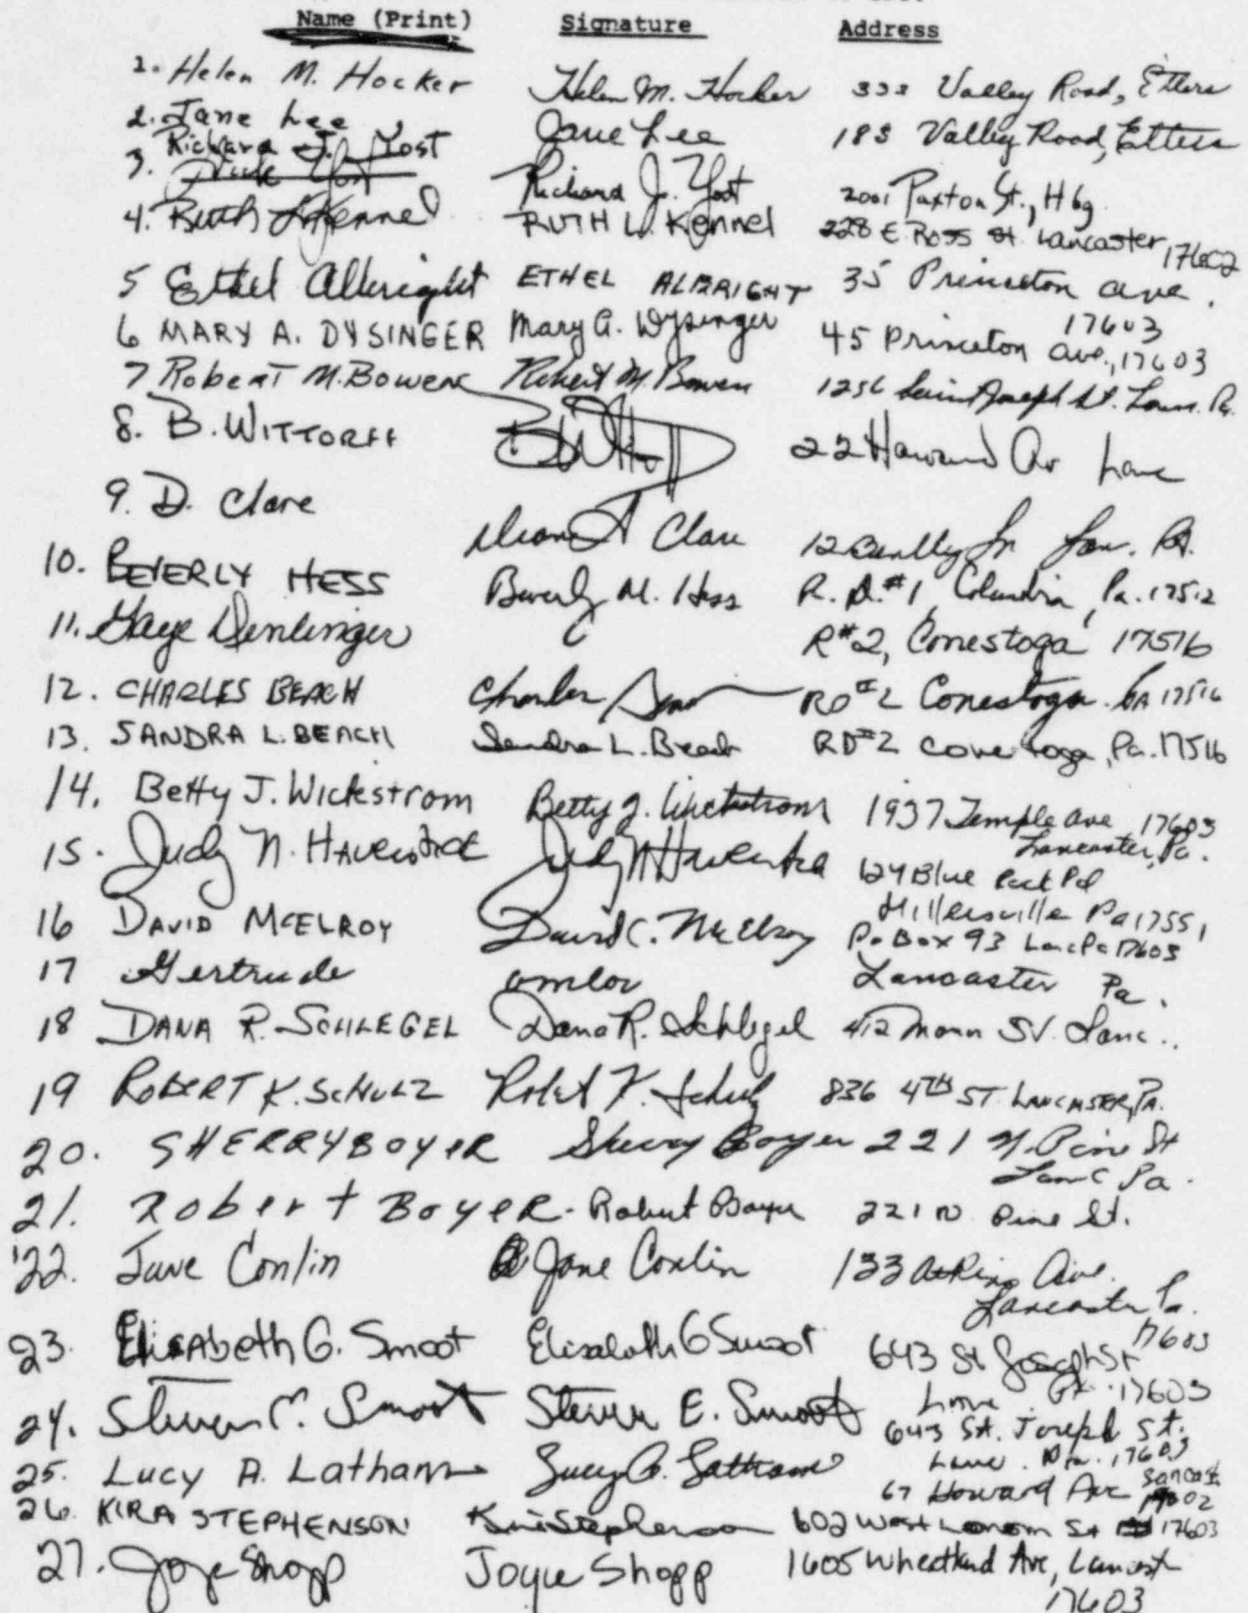 Name (Print) Signature Address
1. Helen M. Hocker Helen M. Hocker 333 Valley Road, Etters
2. Jane Lee Jane Lee 183 Valley Road, Etters
Richard J. Yost
3. Richard J. Yost 2001 Paxton St., Hbg
4. Ruth L. Kennel RUTH L. Kennel 228 E. Ross St. Lancaster, 17602
5 Ethel Albright ETHEL ALBRIGHT 35 Princeton ave.
17603
6 MARY A. DYSINGER Mary A. Dysinger 45 Princeton ave., 17603
7 Robert M. Bowen Robert M. Bowen 1256 Saint Joseph St. Lanc. Pa.
8. B. WITTORFF 22 Howard Av Lanc
9. D. Clare Clare 12 Ln Lan. Pa.
10. BEVERLY HESS Beverly M. Hess R.D.#1, Columbia, Pa. 17512
11. Gaye Denlinger R#2, Conestoga 17516
12. CHARLES BEACH Charles RD#2 Conestoga PA 17516
13. SANDRA L. BEACH Sandra L. Beach RD#2 Conestoga, Pa. 17516
14. Betty J. Wickstrom Betty J. Wickstrom 1937 Temple Ave 17603
Lancaster, Pa.
15. Judy N. Haverstick Judy N Haverstick 624 Blue Rock Rd
Millersville Pa 17551
16 DAVID MCELROY David C. McElroy Po Box 93 Lanc Pa 17603
17 Gertrude Lancaster Pa.
18 DANA R. SCHLEGEL Dana R. Schlegel 412 St. Lanc..
19 ROBERT K. SCHULZ Robert K. Schulz 836 4TH ST. LANCASTER, PA.
20. SHERRY BOYER Sherry Boyer 221 N. Pine St
Lanc Pa.
21. Robert BOYER - Robert Boyer 221 N Pine St.
22. Jane Conlin Jane Conlin 133 Ave.
Lancaster Pa.
17603
23. Elisabeth G. Smoot Elisabeth G Smoot 643 St Joseph St
Lanc Pa. 17603
24. Steven E. Smoot Steven E. Smoot 643 St. Joseph St.
Lanc. Pa. 17603
25. Lucy A. Latham Lucy A. Latham 67 Howard Ave Lancast
26. KIRA STEPHENSON Kira Stephenson 602 West St 17603
27. Joyce Shopp Joyce Shopp 1605 Wheatland Ave, Lancast
17603